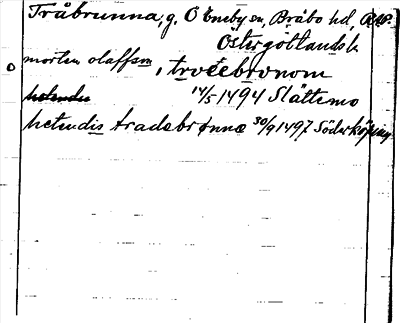 Tråbrunna, g. Ö Eneby sn, Bråbo hd,
Östergötlands l.
morten olaffsm, trocebronom
14/5 1494 Slättemo
hetendis tradabronnæ 30/9 1497 Söderköping